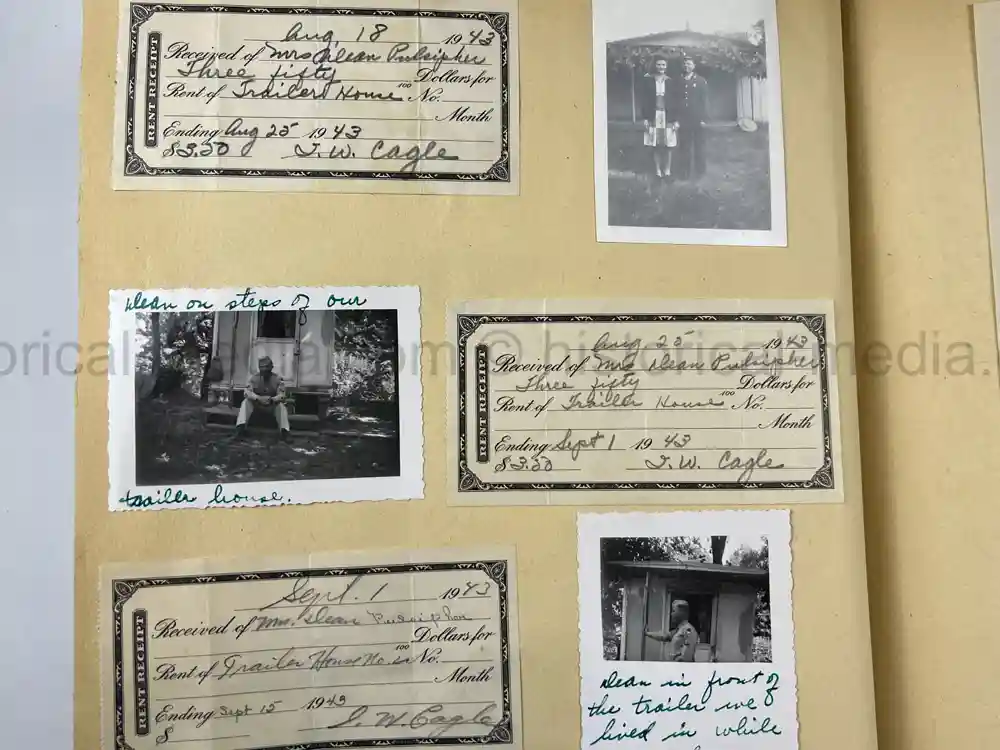 RENT RECEIPT
Aug 18 1943
Received of Mrs Dean Pulsipher
Three fifty Dollars for
Rent of Trailer House 100 No.
Month
Ending Aug 25 1943
$3.50 J. W. Cagle
Dean on steps of our
trailer house.
RENT RECEIPT
Aug 25 1943
Received of Mrs Dean Pulsipher
Three fifty 100 Dollars for
Rent of Trailer House No.
Month
Ending Sept 1 1943
$3.50 J. W. Cagle
RENT RECEIPT
Sept. 1 1943
Received of Mrs. Dean Pulsipher
100 Dollars for
Rent of Trailer House No.
Month
Ending Sept 15 1943
$ J. W. Cagle
Dean in front of
the trailer we
lived in while
© historicalmedia.